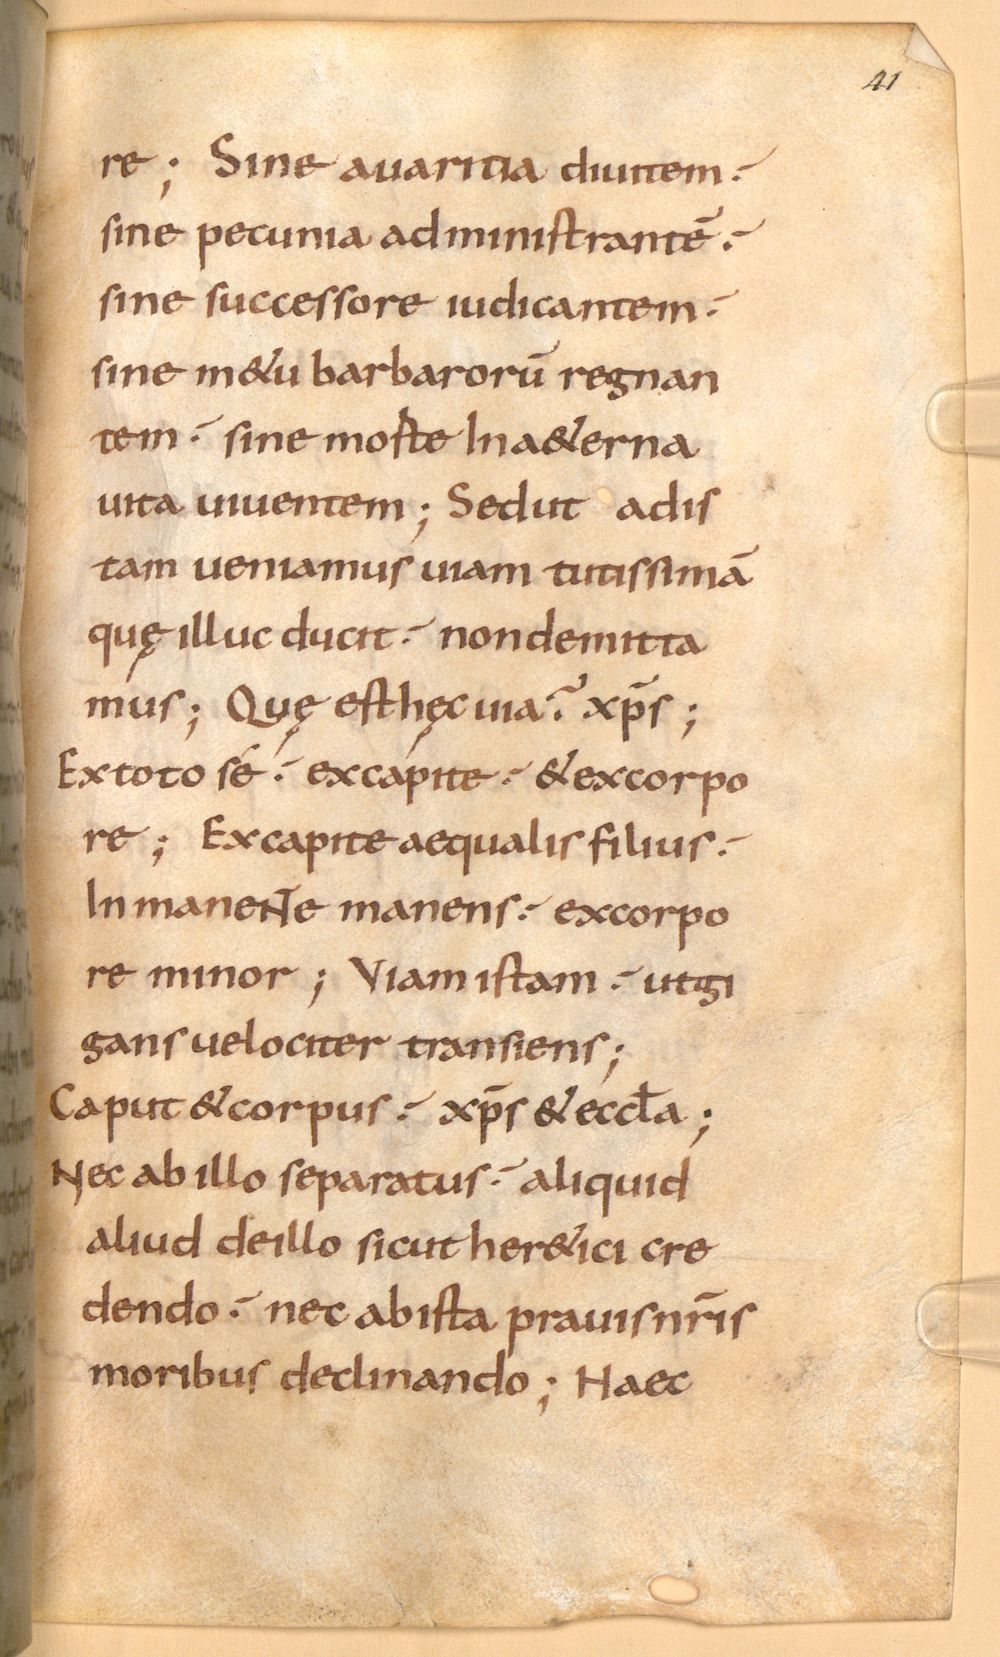 41
re; Sine auaritia diuitem.
sine pecunia administrantē.
sine successore iudicantem.
sine m&u barbarorū regnan
tem. sine morte In a&erna
uita uiuentem; Sedut adis
tam ueniamus uiam tutissimā
quę illuc ducit. nondemitta
mus; Quę est hęc uia? xp̄s;
Ex toto sé. excapite. &excorpo
re; Excapite aequalis filius.
In manente manens. excorpo
re minor; Viam istam. utgi
gans uelociter transiens;
Caput &corpus. xp̄s &eccła;
Nec ab illo separatus. aliquid
aliud deillo sicut her&ici cre
dendo. nec abista prauisnr̄is
moribus declinando; Haec